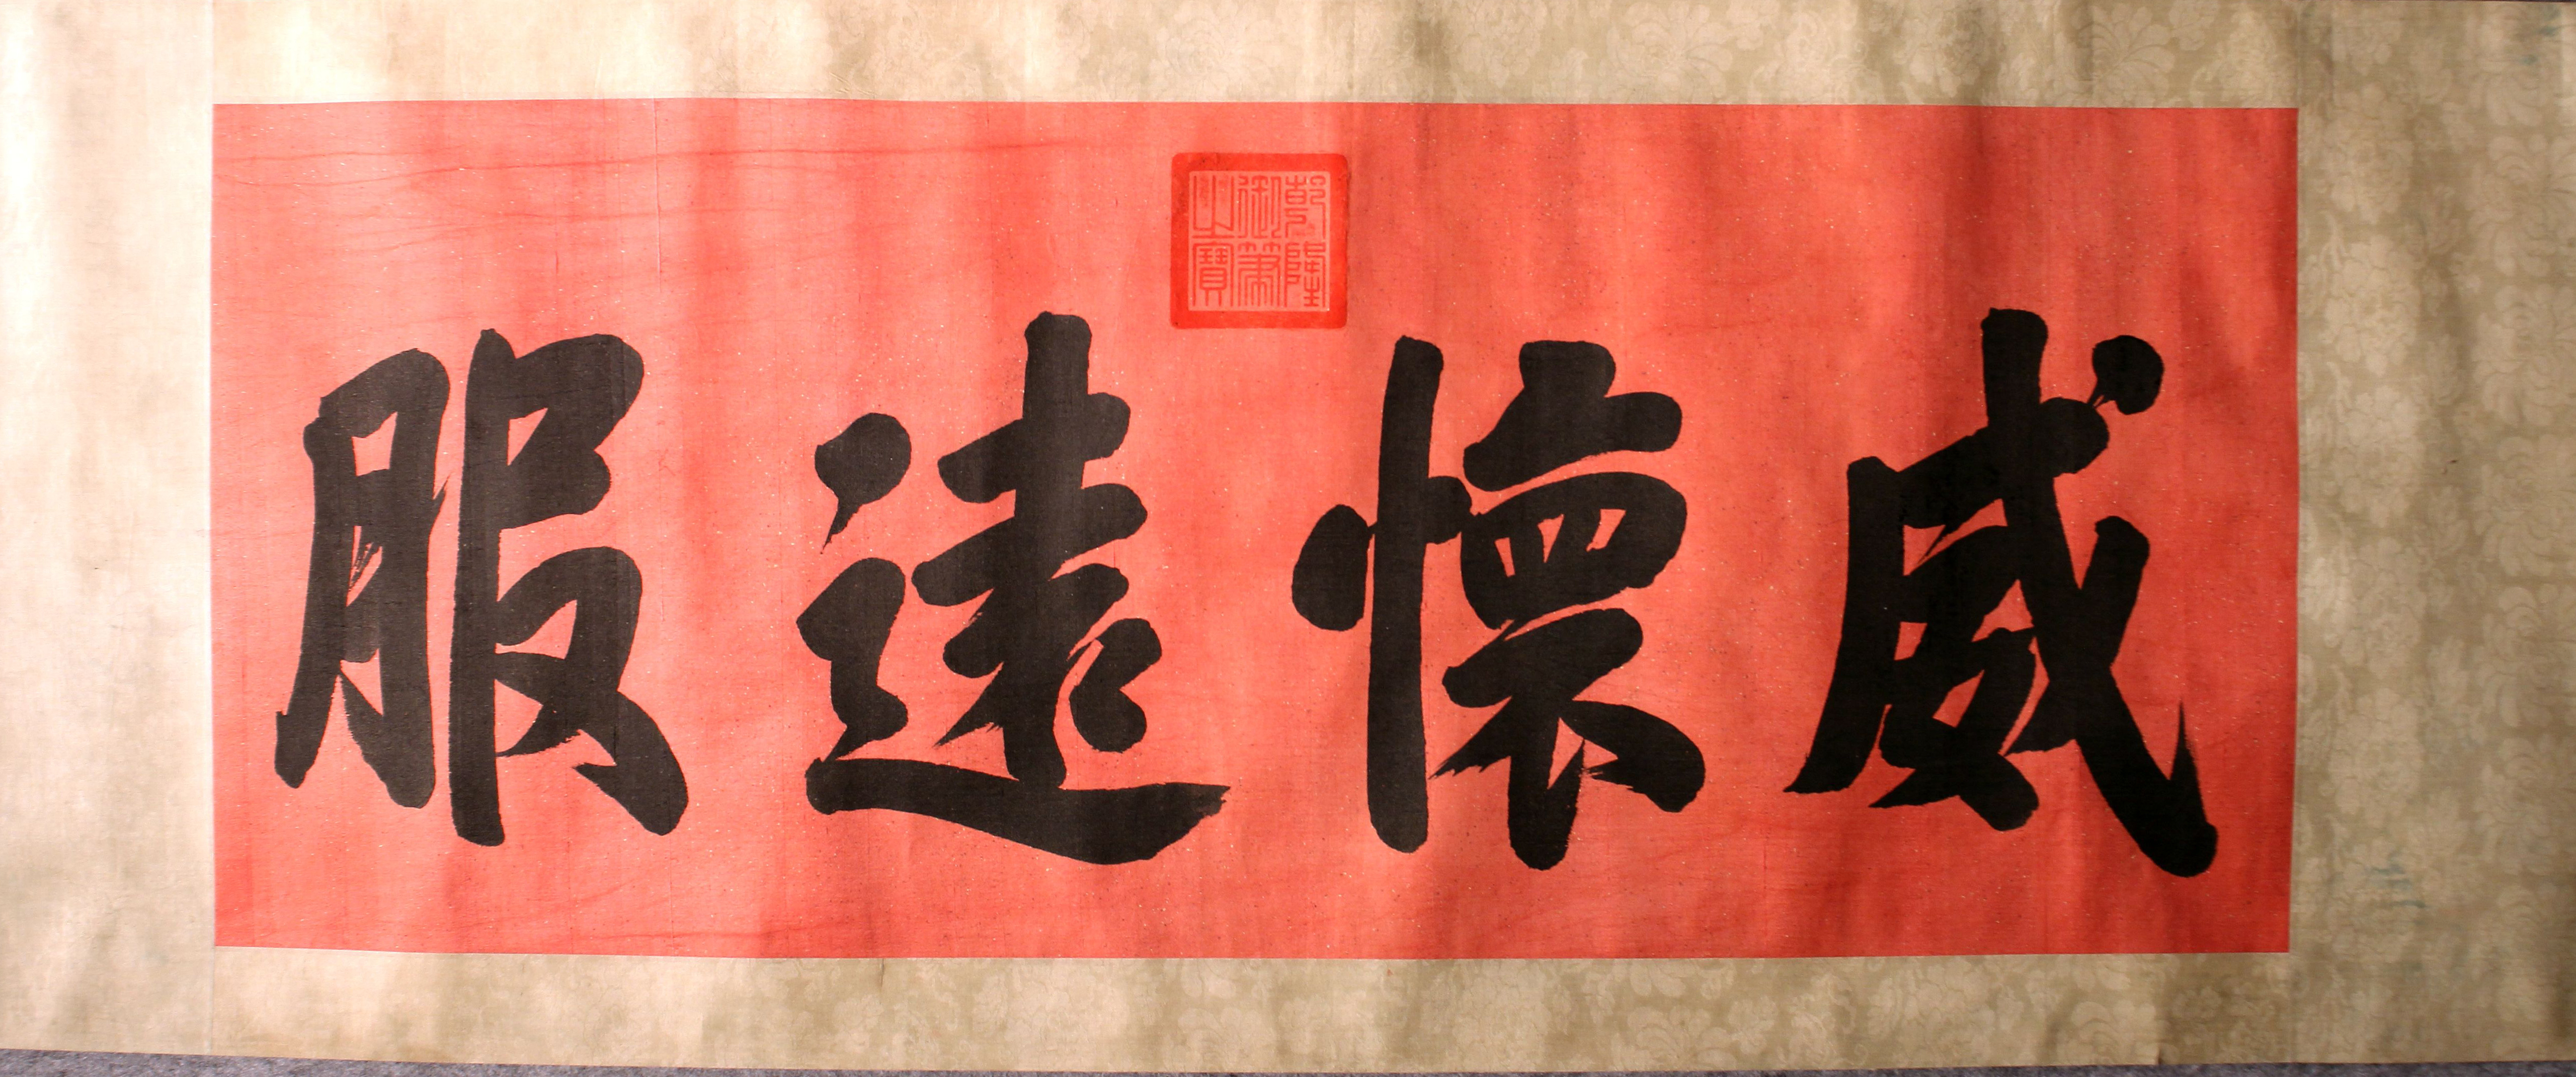 威懷遠服
乾隆御筆之寶